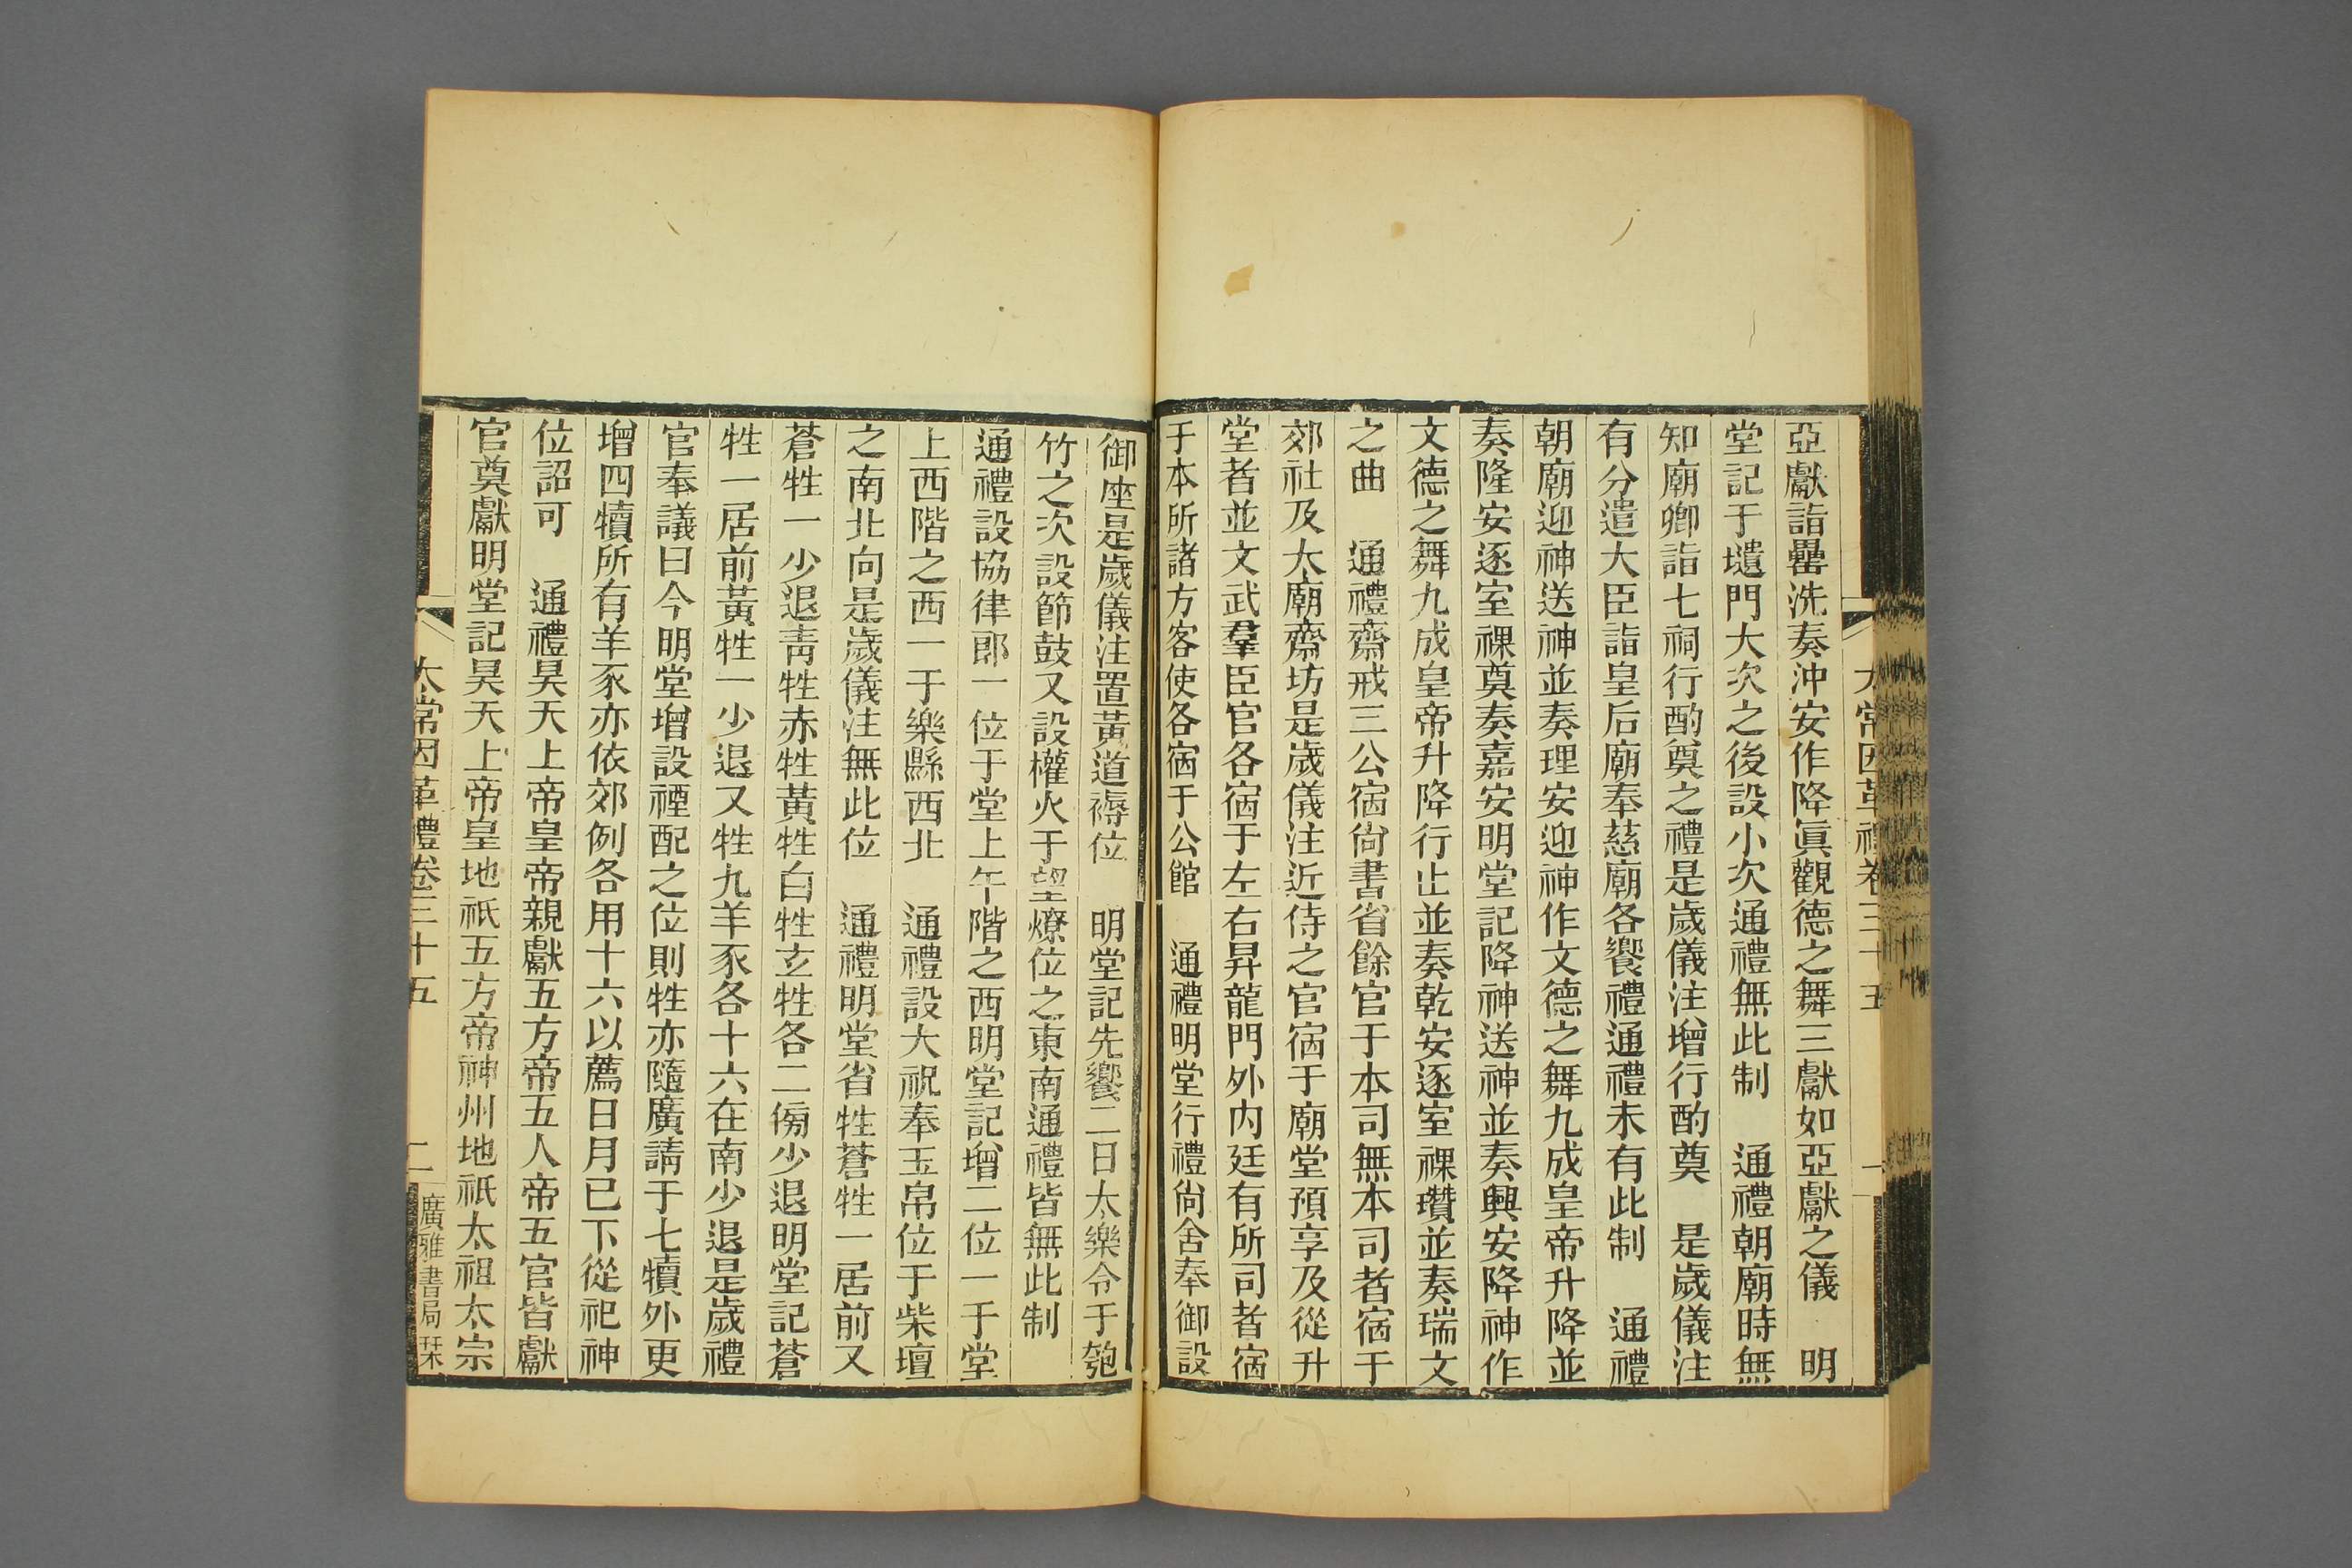 太常因革禮卷三十五
一
亞獻詣罍洗奏沖安作降眞觀德之舞三獻如亞獻之儀　明
堂記于壝門大次之後設小次通禮無此制　通禮朝廟時無
知廟卿詣七祠行酌奠之禮是歲儀注增行酌奠　是歲儀注
有分遣大臣詣皇后廟奉慈廟各饗禮通禮未有此制　通禮
朝廟迎神送神並奏理安迎神作文德之舞九成皇帝升降並
奏隆安逐室祼奠奏嘉安明堂記降神送神並奏興安降神作
文德之舞九成皇帝升降行止並奏乾安逐室祼瓚並奏瑞文
之曲　通禮齋戒三公宿尙書省餘官于本司無本司者宿于
郊社及太廟齋坊是歲儀注近侍之官宿于廟堂預享及從升
堂者並文武羣臣官各宿于左右昇龍門外內廷有所司者宿
于本所諸方客使各宿于公館　通禮明堂行禮尙舍奉御設
御座是歲儀注置黃道褥位　明堂記先饗二日太樂令于匏
竹之次設節鼓又設權火于望燎位之東南通禮皆無此制
通禮設協律郎一位于堂上午階之西明堂記增二位一于堂
上西階之西一于樂縣西北　通禮設大祝奉玉帛位于柴壇
之南北向是歲儀注無此位　通禮明堂省牲蒼牲一居前又
蒼牲一少退靑牲赤牲黃牲白牲玄牲各二偝少退明堂記蒼
牲一居前黃牲一少退又牲九羊豕各十六在南少退是歲禮
官奉議曰今明堂增設禋配之位則牲亦隨廣請于七犢外更
增四犢所有羊豕亦依郊例各用十六以薦日月已下從祀神
位詔可　通禮昊天上帝皇帝親獻五方帝五人帝五官皆獻
官奠獻明堂記昊天上帝皇地祇五方帝神州地祇太祖太宗
太常因革禮卷三十五
二
廣雅書局栞